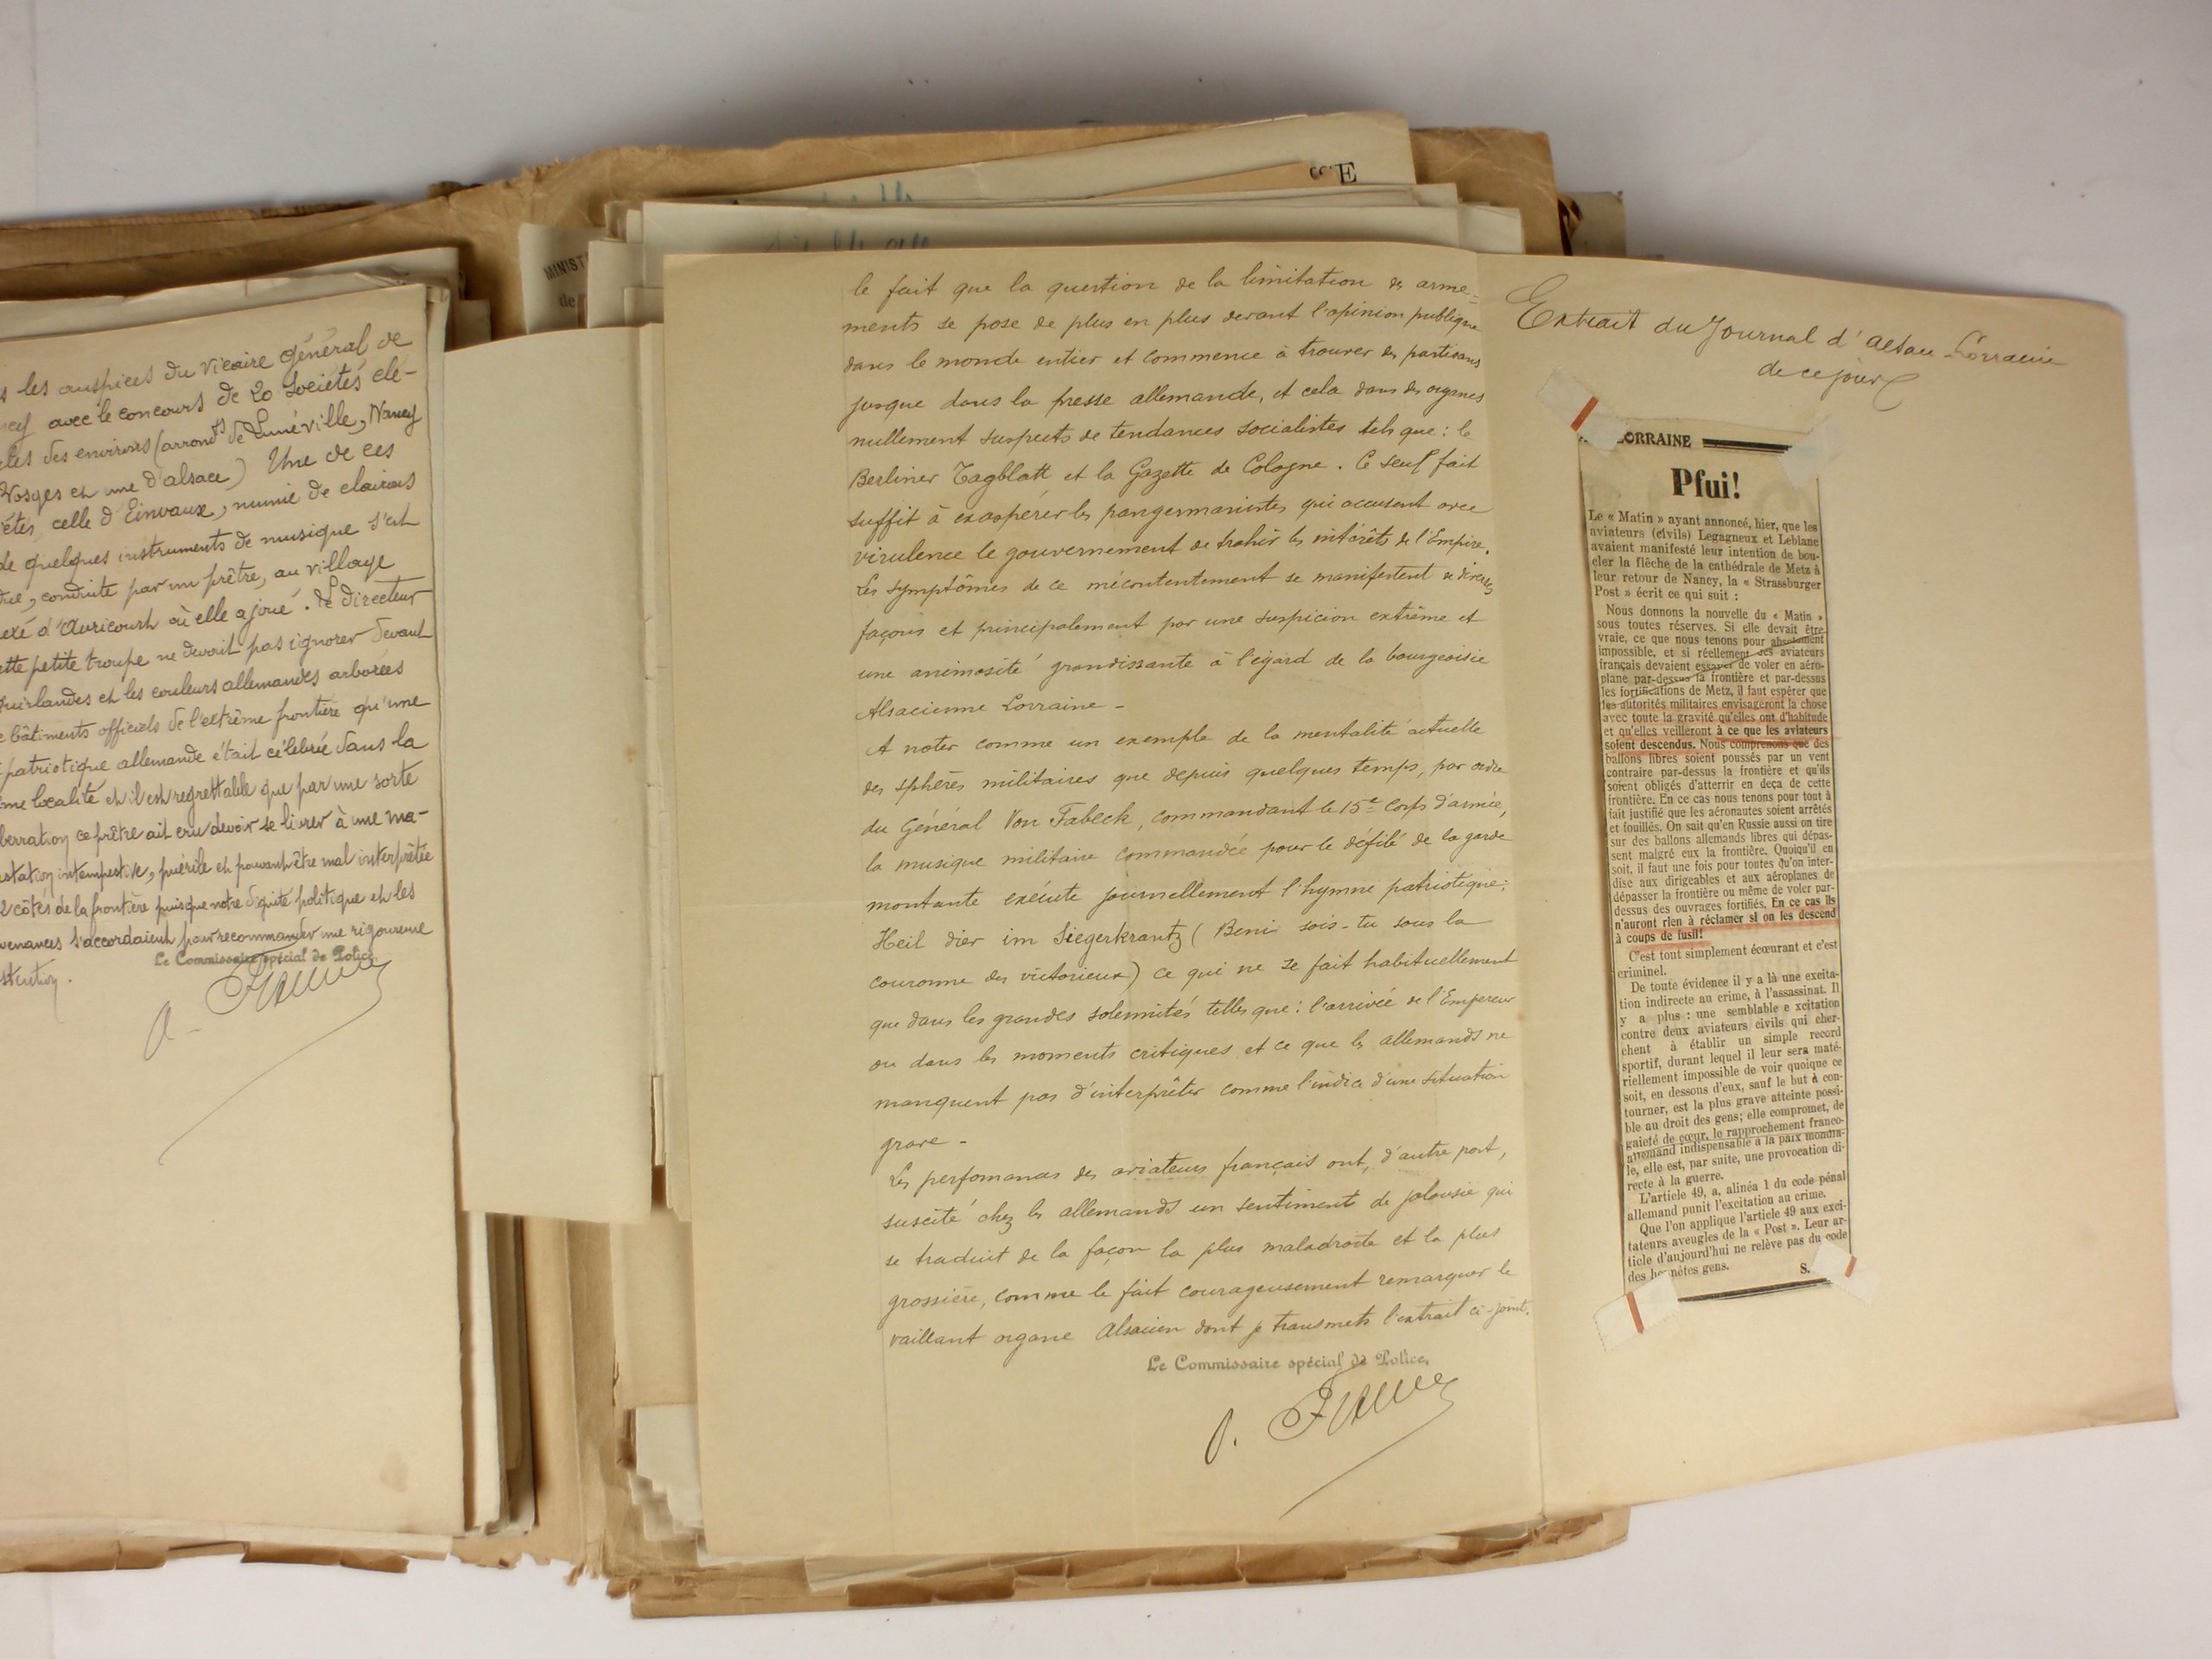 les auspices du Vicaire général de
avec le concours de 20 Sociétés clé-
des environs (arrondts de Lunéville, Nancy
Vosges et une d'alsace) Une de ces
celle d'Einvaux, munie de clairons
de quelques instruments de musique s'est
conduite par un prêtre, au village
d'Avricourt où elle a joué. Le directeur
petite troupe ne devait pas ignorer devant
guirlandes et les couleurs allemandes arborées
bâtiments officiels de l'extrême frontière qu'une
patriotique allemande était célébrée dans la
localité et il est regrettable que par une sorte
ce prêtre ait cru devoir se livrer à une ma-
intempestive, puérile et pouvant être mal interprétée
2 côtés de la frontière puisque notre dignité politique et les
s'accordaient pour recommander une rigoureuse
Le Commissaire spécial de Police,
MINIST
de
E
le fait que la question de la limitation des arme=
ments se pose de plus en plus devant l'opinion publique
dans le monde entier et commence à trouver des partisans
jusque dans la presse allemande, et cela dans des organes
nullement suspects de tendances socialistes tels que : le
Berliner Tagblatt et la Gazette de Cologne. Ce seul fait
suffit à exaspérer les pangermanistes qui accusent avec
virulence le gouvernement de trahir les intérêts de l'Empire.
Les symptômes de ce mécontentement se manifestent de diverses
façons et principalement par une suspicion extrême et
une animosité grandissante à l'égard de la bourgeoisie
Alsacienne Lorraine -
A noter comme un exemple de la mentalité actuelle
des sphères militaires que depuis quelques temps, par ordre
du Général Von Fabeck, commandant le 15e Corps d'armée,
la musique militaire commandée pour le défilé de la garde
montante exécute journellement l'hymne patriotique:
Heil dier im Siegerkrantz (Beni sois-tu sous la
couronne des victorieux) ce qui ne se fait habituellement
que dans les grandes solennités telles que : l'arrivée de l'Empereur
ou dans les moments critiques et ce que les allemands ne
manquent pas d'interprêter comme l'indice d'une situation
grave -
Les perfomances des aviateurs français ont, d'autre part,
suscité chez les allemands un sentiment de jalousie qui
se traduit de la façon la plus maladroite et la plus
grossière, comme le fait courageusement remarquer le
vaillant organe Alsacien dont je transmets l'extrait ci-joint.
Le Commissaire spécial de Police,
Extrait du Journal d'Alsace-Lorraine
de ce jour
LORRAINE
Pfui!
Le « Matin » ayant annoncé, hier, que les
aviateurs (civils) Legagneux et Leblanc
avaient manifesté leur intention de bou-
cler la flèche de la cathédrale de Metz à
leur retour de Nancy, la « Strassburger
Post » écrit ce qui suit :
Nous donnons la nouvelle du « Matin »
sous toutes réserves. Si elle devait être
vraie, ce que nous tenons pour absolument
impossible, et si réellement des aviateurs
français devaient essayer de voler en aéro-
plane par-dessus la frontière et par-dessus
les fortifications de Metz, il faut espérer que
les autorités militaires envisageront la chose
avec toute la gravité qu'elles ont d'habitude
et qu'elles veilleront à ce que les aviateurs
soient descendus. Nous comprenons que des
ballons libres soient poussés par un vent
contraire par-dessus la frontière et qu'ils
soient obligés d'atterrir en deça de cette
frontière. En ce cas nous tenons pour tout à
fait justifié que les aéronautes soient arrêtés
et fouillés. On sait qu'en Russie aussi on tire
sur des ballons allemands libres qui dépas-
sent malgré eux la frontière. Quoiqu'il en
soit, il faut une fois pour toutes qu'on inter-
dise aux dirigeables et aux aéroplanes de
dépasser la frontière ou même de voler par-
dessus des ouvrages fortifiés. En ce cas ils
n'auront rien à réclamer si on les descend
à coups de fusil!
C'est tout simplement écœurant et c'est
criminel.
De toute évidence il y a là une excita-
tion indirecte au crime, à l'assassinat. Il
y a plus : une semblable e xcitation
contre deux aviateurs civils qui cher-
chent à établir un simple record
sportif, durant lequel il leur sera maté-
riellement impossible de voir quoique ce
soit, en dessous d'eux, sauf le but à con-
tourner, est la plus grave atteinte possi-
ble au droit des gens; elle compromet, de
gaieté de cœur, le rapprochement franco-
allemand indispensable à la paix mondia-
le, elle est, par suite, une provocation di-
recte à la guerre.
L'article 49, a, alinéa 1 du code pénal
allemand punit l'excitation au crime.
Que l'on applique l'article 49 aux exci-
tateurs aveugles de la « Post ». Leur ar-
ticle d'aujourd'hui ne relève pas du code
des honnêtes gens.
S.